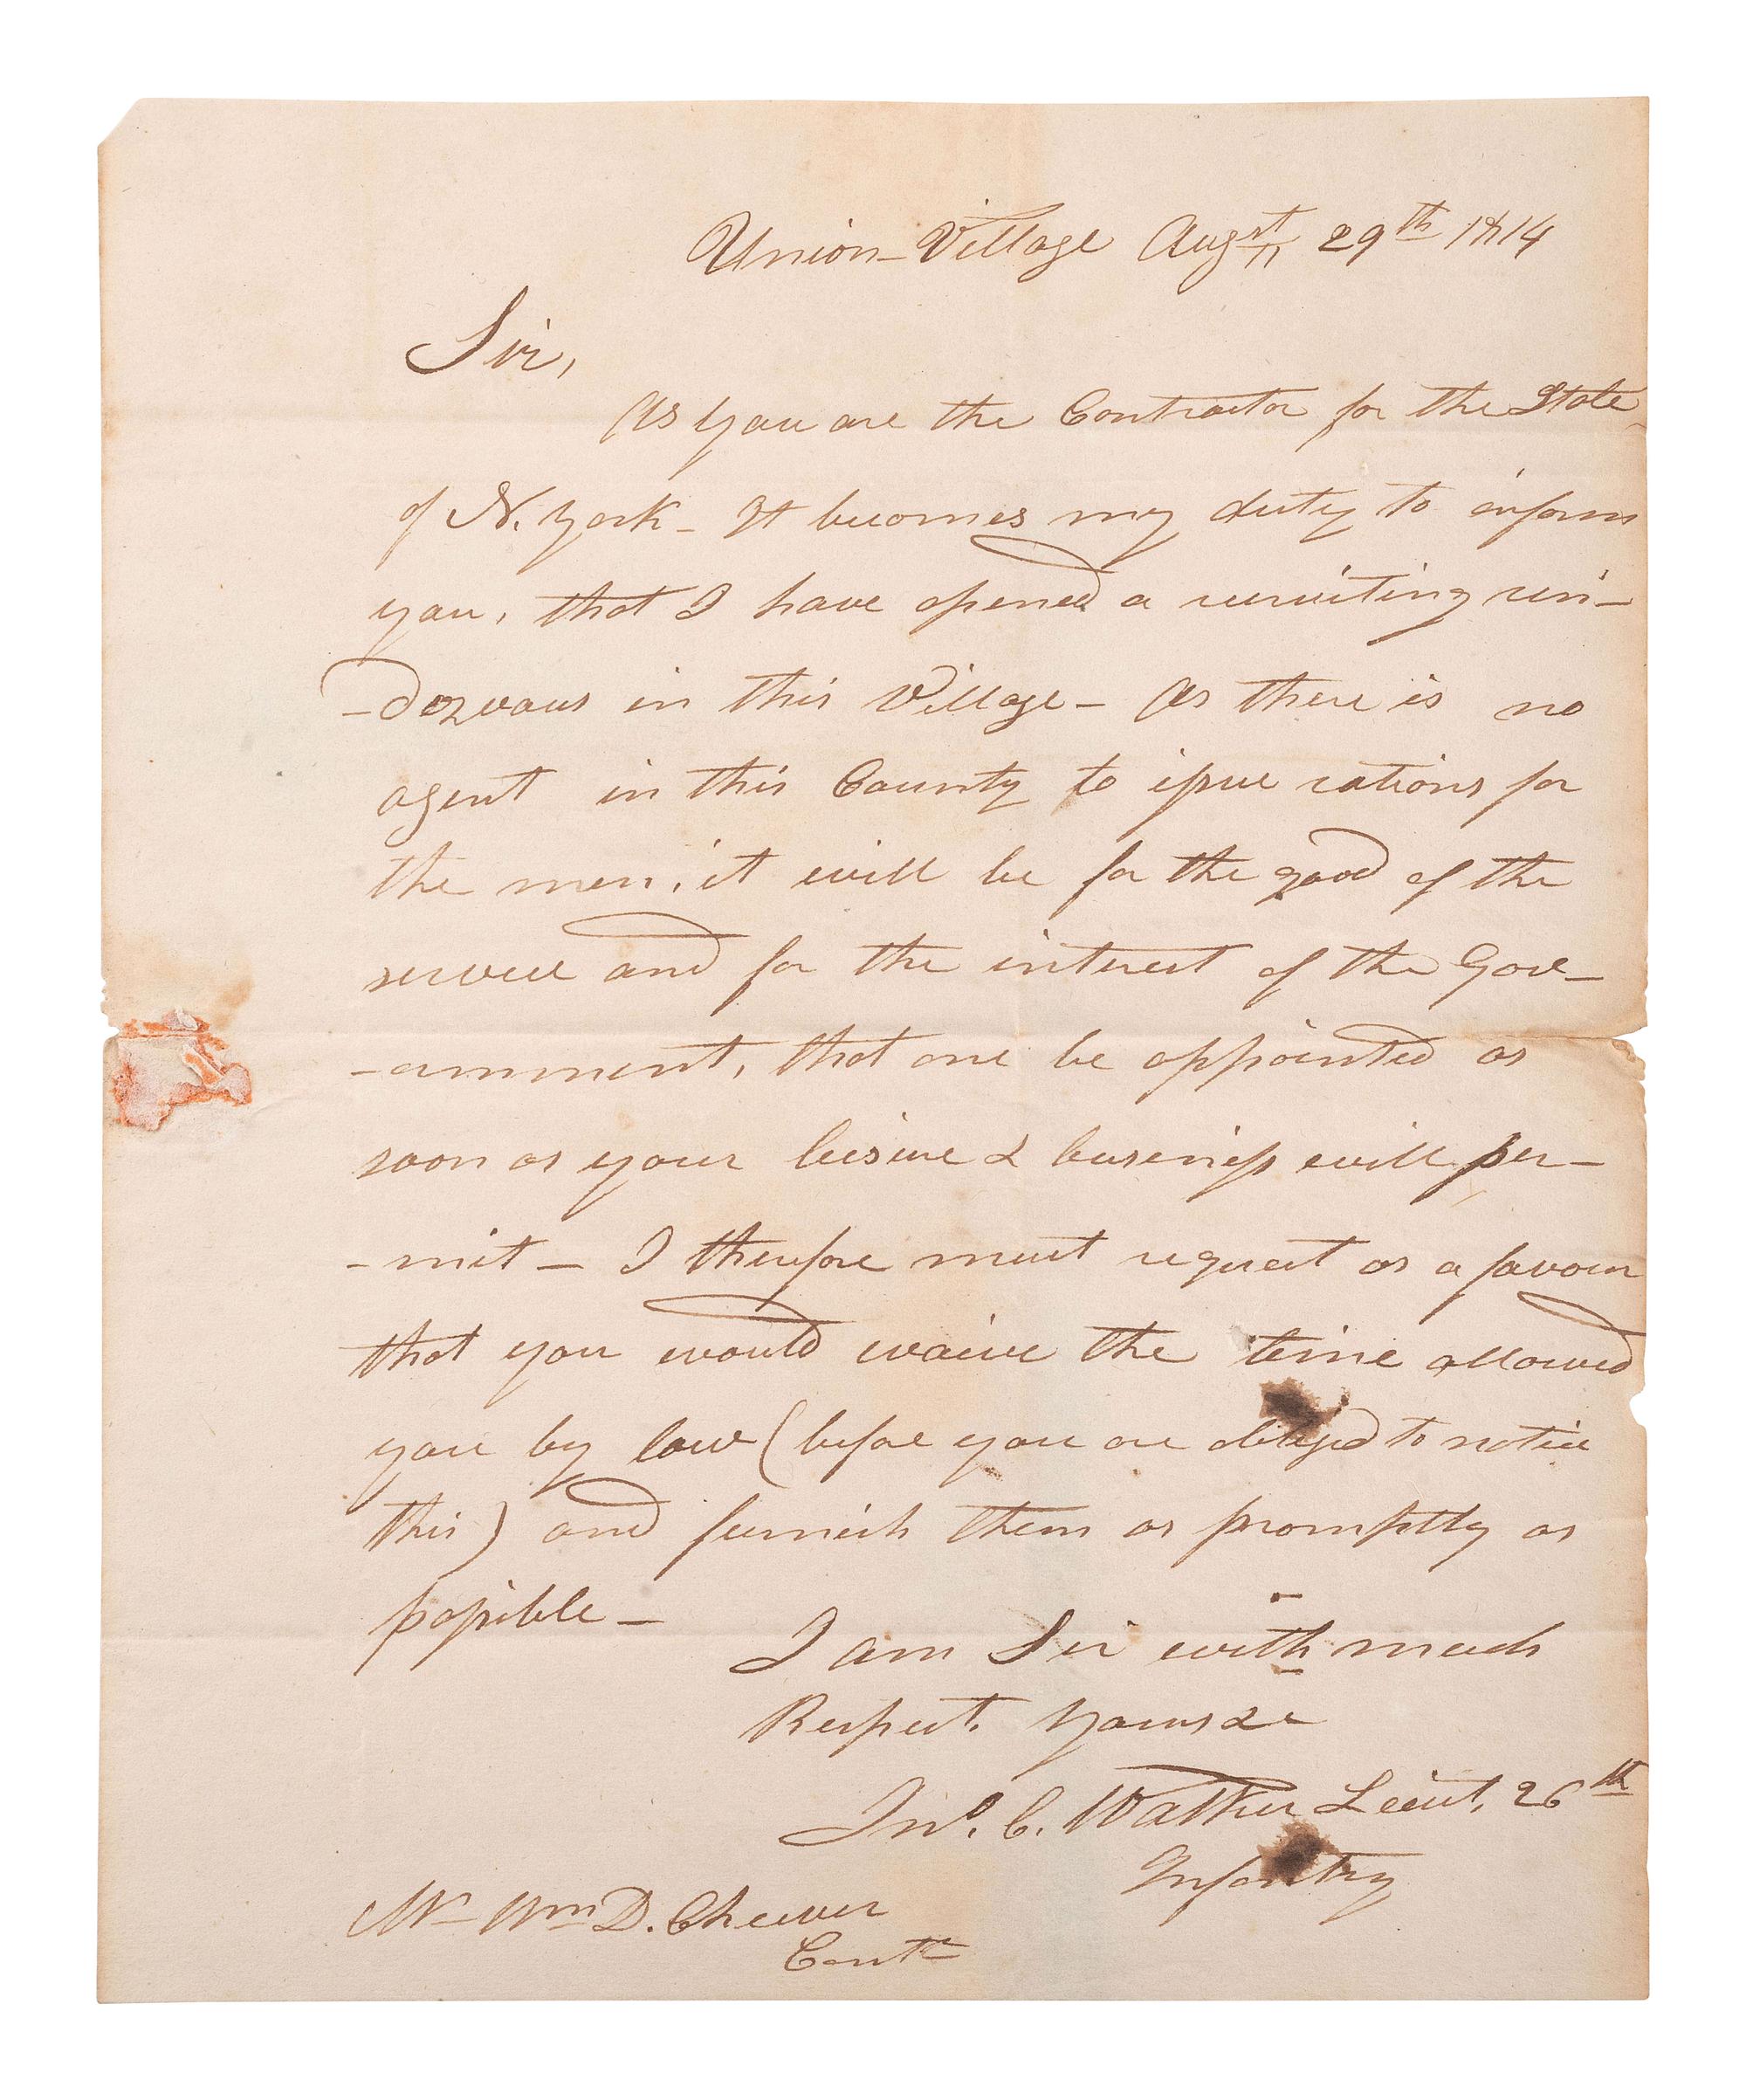 Union-Village Augst 29th 1814
Sir,
As you are the Contractor for the State
of N. York - It becomes my duty to inform
you, that I have opened a recruiting ren-
-dezvous in this Village - As there is no
agent in this County to issue rations for
the men, it will be for the good of the
service and for the interest of the Gov-
-ernment, that one be appointed as
soon as your leisure & business will per-
-mit - I therefore must request as a favour
that you would waive the time allowed
you by law (before you are obliged to notice
this) and furnish them as promptly as
possible -
I am Sir with much
Respect. Yours &c
Jno. C. Walker Lieut. 26th
Infantry
Mr Wm D. Cheever
Contr